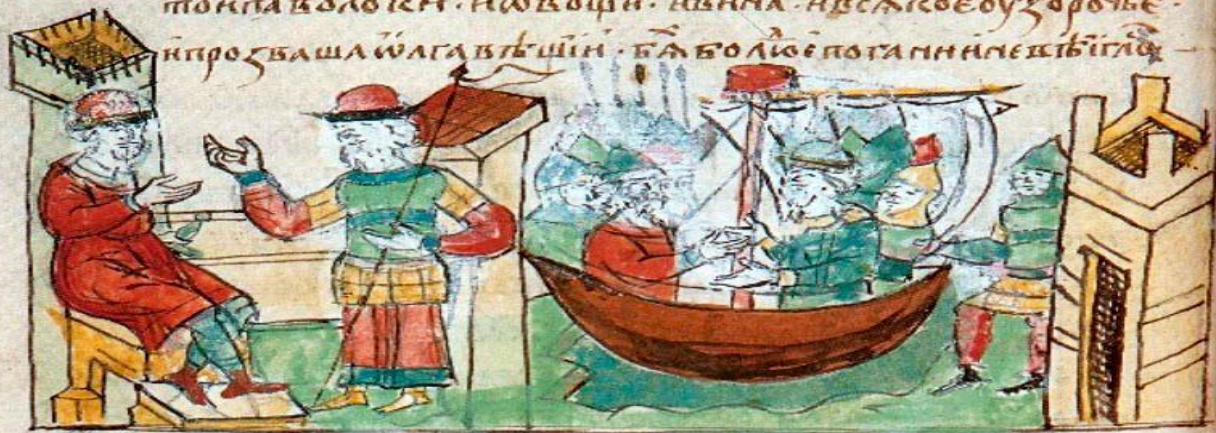 то и паволоки · и ѡвощи · и вина · и всѧкое оузорочье ·
и прозваша ѡлга вѣщїи · бѧ бо людїе погани и невѣигло